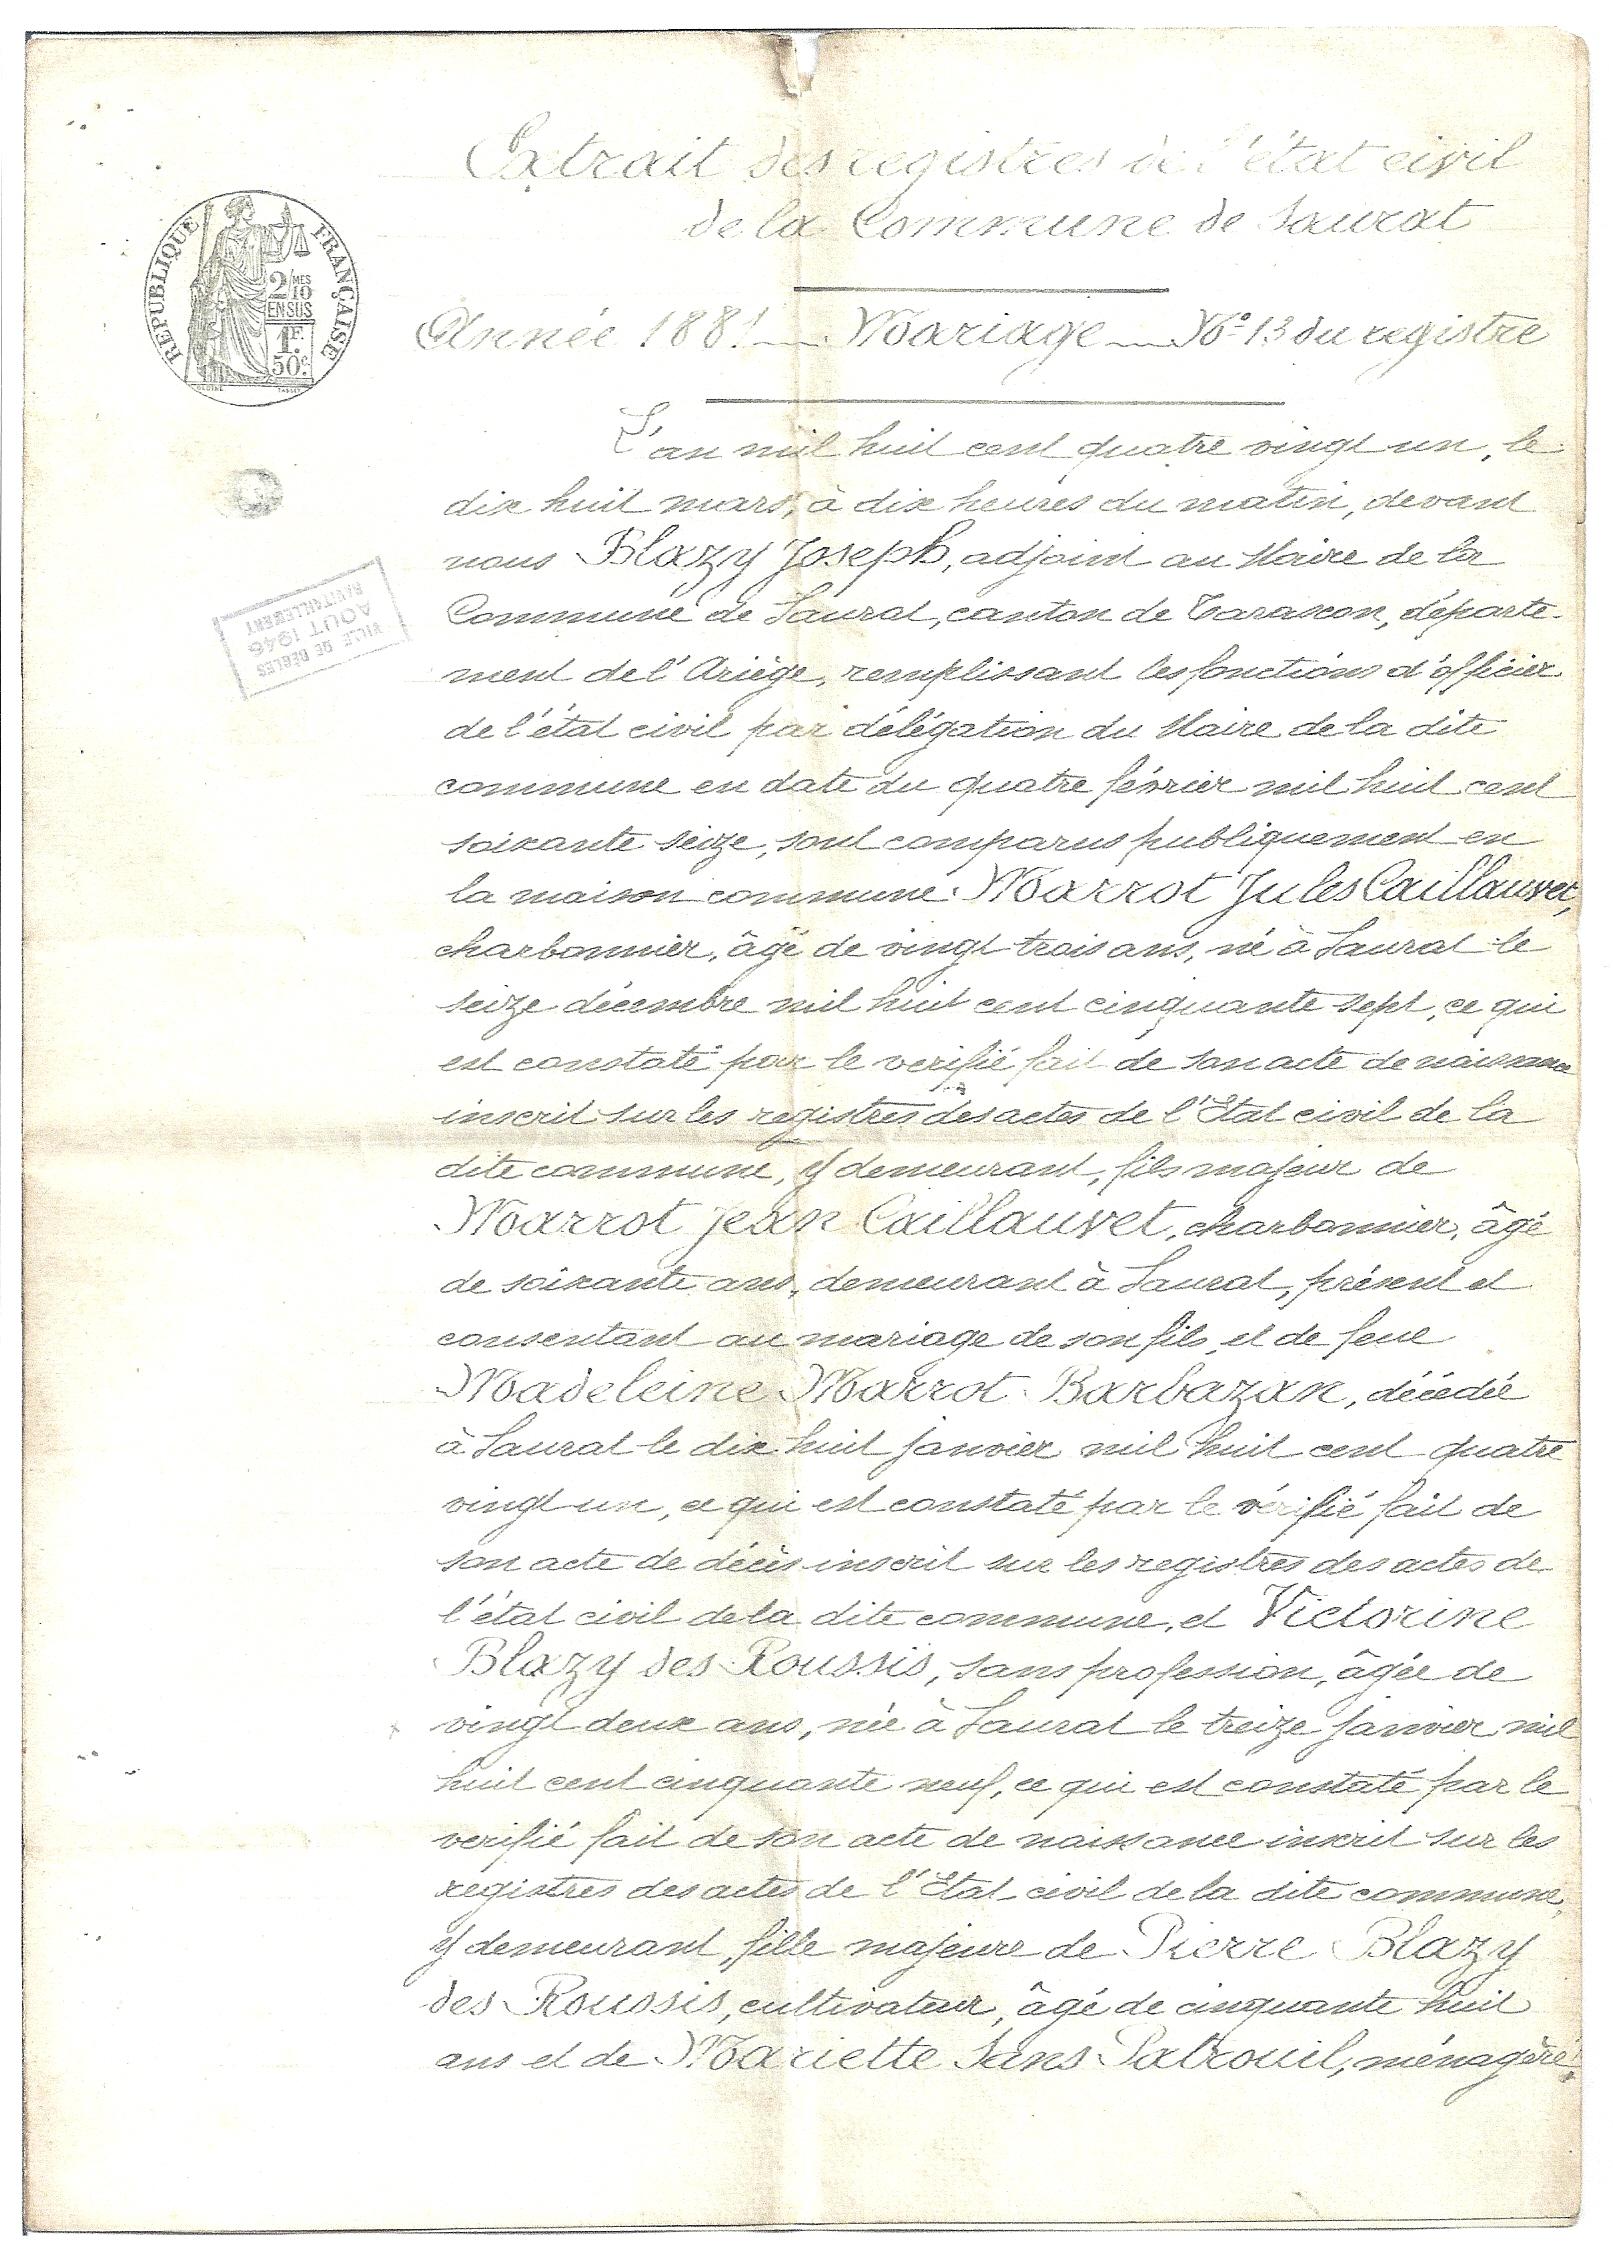 Extrait des registres de l'état civil
de la Commune de Saurat
REPUBLIQUE FRANÇAISE
2/10 MES
EN SUS
1F.
50c.
Année 1881 — Mariage — No 13 du registre
L'an mil huit cent quatre vingt un, le
dix huit mars, à dix heures du matin, devant
nous Blazy Joseph, adjoint au Maire de la
Commune de Saurat, canton de Tarascon, départe-
ment de l'Ariège, remplissant les fonctions d'officier
de l'état civil par délégation du Maire de la dite
commune en date du quatre février mil huit cent
soixante seize, sont comparus publiquement en
la maison commune Marrot Jules Caillauvet,
charbonnier, âgé de vingt trois ans, né à Saurat le
seize décembre mil huit cent cinquante sept, ce qui
est constaté par le verifié fait de son acte de naissance
inscrit sur les registres des actes de l'Etat civil de la
dite commune, y demeurant, fils majeur de
Marrot Jean Caillauvet, charbonnier, âgé
de soixante ans, demeurant à Saurat, présent et
consentant au mariage de son fils, et de feue
Madeleine Marrot Barbazan, décédée
à Saurat le dix huit janvier mil huit cent quatre
vingt un, ce qui est constaté par le vérifié fait de
son acte de décès inscrit sur les registres des actes de
l'état civil de la dite commune, et Victorine
Blazy des Roussis, sans profession, âgée de
vingt deux ans, née à Saurat le treize janvier mil
huit cent cinquante neuf, ce qui est constaté par le
verifié fait de son acte de naissance inscrit sur les
registres des actes de l'Etat civil de la dite commune,
y demeurant, fille majeure de Pierre Blazy
des Roussis, cultivateur, âgé de cinquante huit
ans et de Mariette Sans Patrouil, ménagère,
VILLE DE BEGLES
AOUT 1946
RAVITAILLEMENT